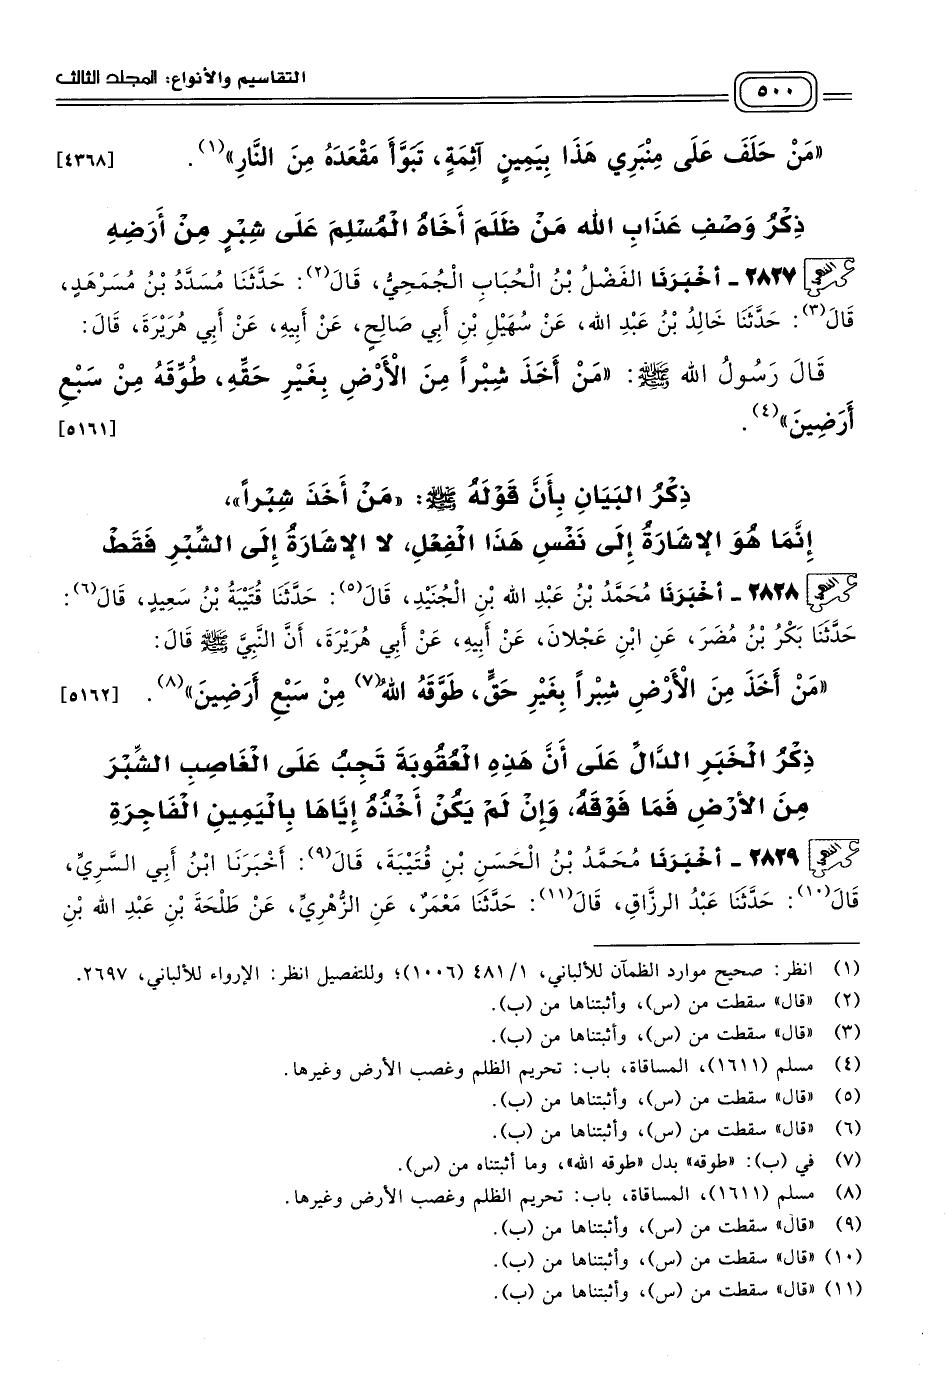 التقاسيم والأنواع: المجلد الثالث
٥٠٠
«مَنْ حَلَفَ عَلَى مِنْبَرِي هَذَا بِيَمِينٍ آثِمَةٍ، تَبَوَّأَ مَقْعَدَهُ مِنَ النَّارِ»(١). [٤٣٦٨]
ذِكْرُ وَصْفِ عَذَابِ الله مَنْ ظَلَمَ أَخَاهُ الْمُسْلِمَ عَلَى شِبْرٍ مِنْ أَرْضِهِ
٢٨٢٧ - أَخْبَرَنَا الفَضْلُ بْنُ الْحُبَابِ الْجُمَحِيُّ، قَالَ(٢): حَدَّثَنَا مُسَدَّدُ بْنُ مُسَرْهَدٍ،
قَالَ(٣): حَدَّثَنَا خَالِدُ بْنُ عَبْدِ الله، عَنْ سُهَيْلِ بْنِ أَبِي صَالِحٍ، عَنْ أَبِيهِ، عَنْ أَبِي هُرَيْرَةَ، قَالَ:
قَالَ رَسُولُ الله ﷺ: «مَنْ أَخَذَ شِبْراً مِنَ الْأَرْضِ بِغَيْرِ حَقِّهِ، طُوِّقَهُ مِنْ سَبْعِ
أَرَضِينَ»(٤). [٥١٦١]
ذِكْرُ البَيَانِ بِأَنَّ قَوْلَهُ ﷺ: «مَنْ أَخَذَ شِبْراً»،
إِنَّمَا هُوَ الإشَارَةُ إِلَى نَفْسِ هَذَا الْفِعْلِ، لا الإشَارَةُ إِلَى الشِّبْرِ فَقَطْ
٢٨٢٨ - أَخْبَرَنَا مُحَمَّدُ بْنُ عَبْدِ الله بْنِ الْجُنَيْدِ، قَالَ(٥): حَدَّثَنَا قُتَيْبَةُ بْنُ سَعِيدٍ، قَالَ(٦):
حَدَّثَنَا بَكْرُ بْنُ مُضَرَ، عَنِ ابْنِ عَجْلانَ، عَنْ أَبِيهِ، عَنْ أَبِي هُرَيْرَةَ، أَنَّ النَّبِيَّ ﷺ قَالَ:
«مَنْ أَخَذَ مِنَ الْأَرْضِ شِبْراً بِغَيْرِ حَقٍّ، طَوَّقَهُ اللهُ(٧) مِنْ سَبْعِ أَرَضِينَ»(٨). [٥١٦٢]
ذِكْرُ الْخَبَرِ الدَّالِّ عَلَى أَنَّ هَذِهِ الْعُقُوبَةَ تَجِبُ عَلَى الْغَاصِبِ الشِّبْرَ
مِنَ الأَرْضِ فَمَا فَوْقَهُ، وَإِنْ لَمْ يَكُنْ أَخْذُهُ إِيَّاهَا بِالْيَمِينِ الْفَاجِرَةِ
٢٨٢٩ - أَخْبَرَنَا مُحَمَّدُ بْنُ الْحَسَنِ بْنِ قُتَيْبَةَ، قَالَ(٩): أَخْبَرَنَا ابْنُ أَبِي السَّرِيِّ،
قَالَ(١٠): حَدَّثَنَا عَبْدُ الرزَّاقِ، قَالَ(١١): حَدَّثَنَا مَعْمَرٌ، عَنِ الزُّهْرِيِّ، عَنْ طَلْحَةَ بْنِ عَبْدِ الله بْنِ
(١) انظر: صحيح موارد الظمآن للألباني، ١/ ٤٨١ (١٠٠٦)؛ وللتفصيل انظر: الإرواء للألباني، ٢٦٩٧.
(٢) «قال» سقطت من (س)، وأثبتناها من (ب).
(٣) «قال» سقطت من (س)، وأثبتناها من (ب).
(٤) مسلم (١٦١١)، المساقاة، باب: تحريم الظلم وغصب الأرض وغيرها.
(٥) «قال» سقطت من (س)، وأثبتناها من (ب).
(٦) «قال» سقطت من (س)، وأثبتناها من (ب).
(٧) في (ب): «طوقه» بدل «طوقه الله»، وما أثبتناه من (س).
(٨) مسلم (١٦١١)، المساقاة، باب: تحريم الظلم وغصب الأرض وغيرها.
(٩) «قال» سقطت من (س)، وأثبتناها من (ب).
(١٠) «قال» سقطت من (س)، وأثبتناها من (ب).
(١١) «قال» سقطت من (س)، وأثبتناها من (ب).